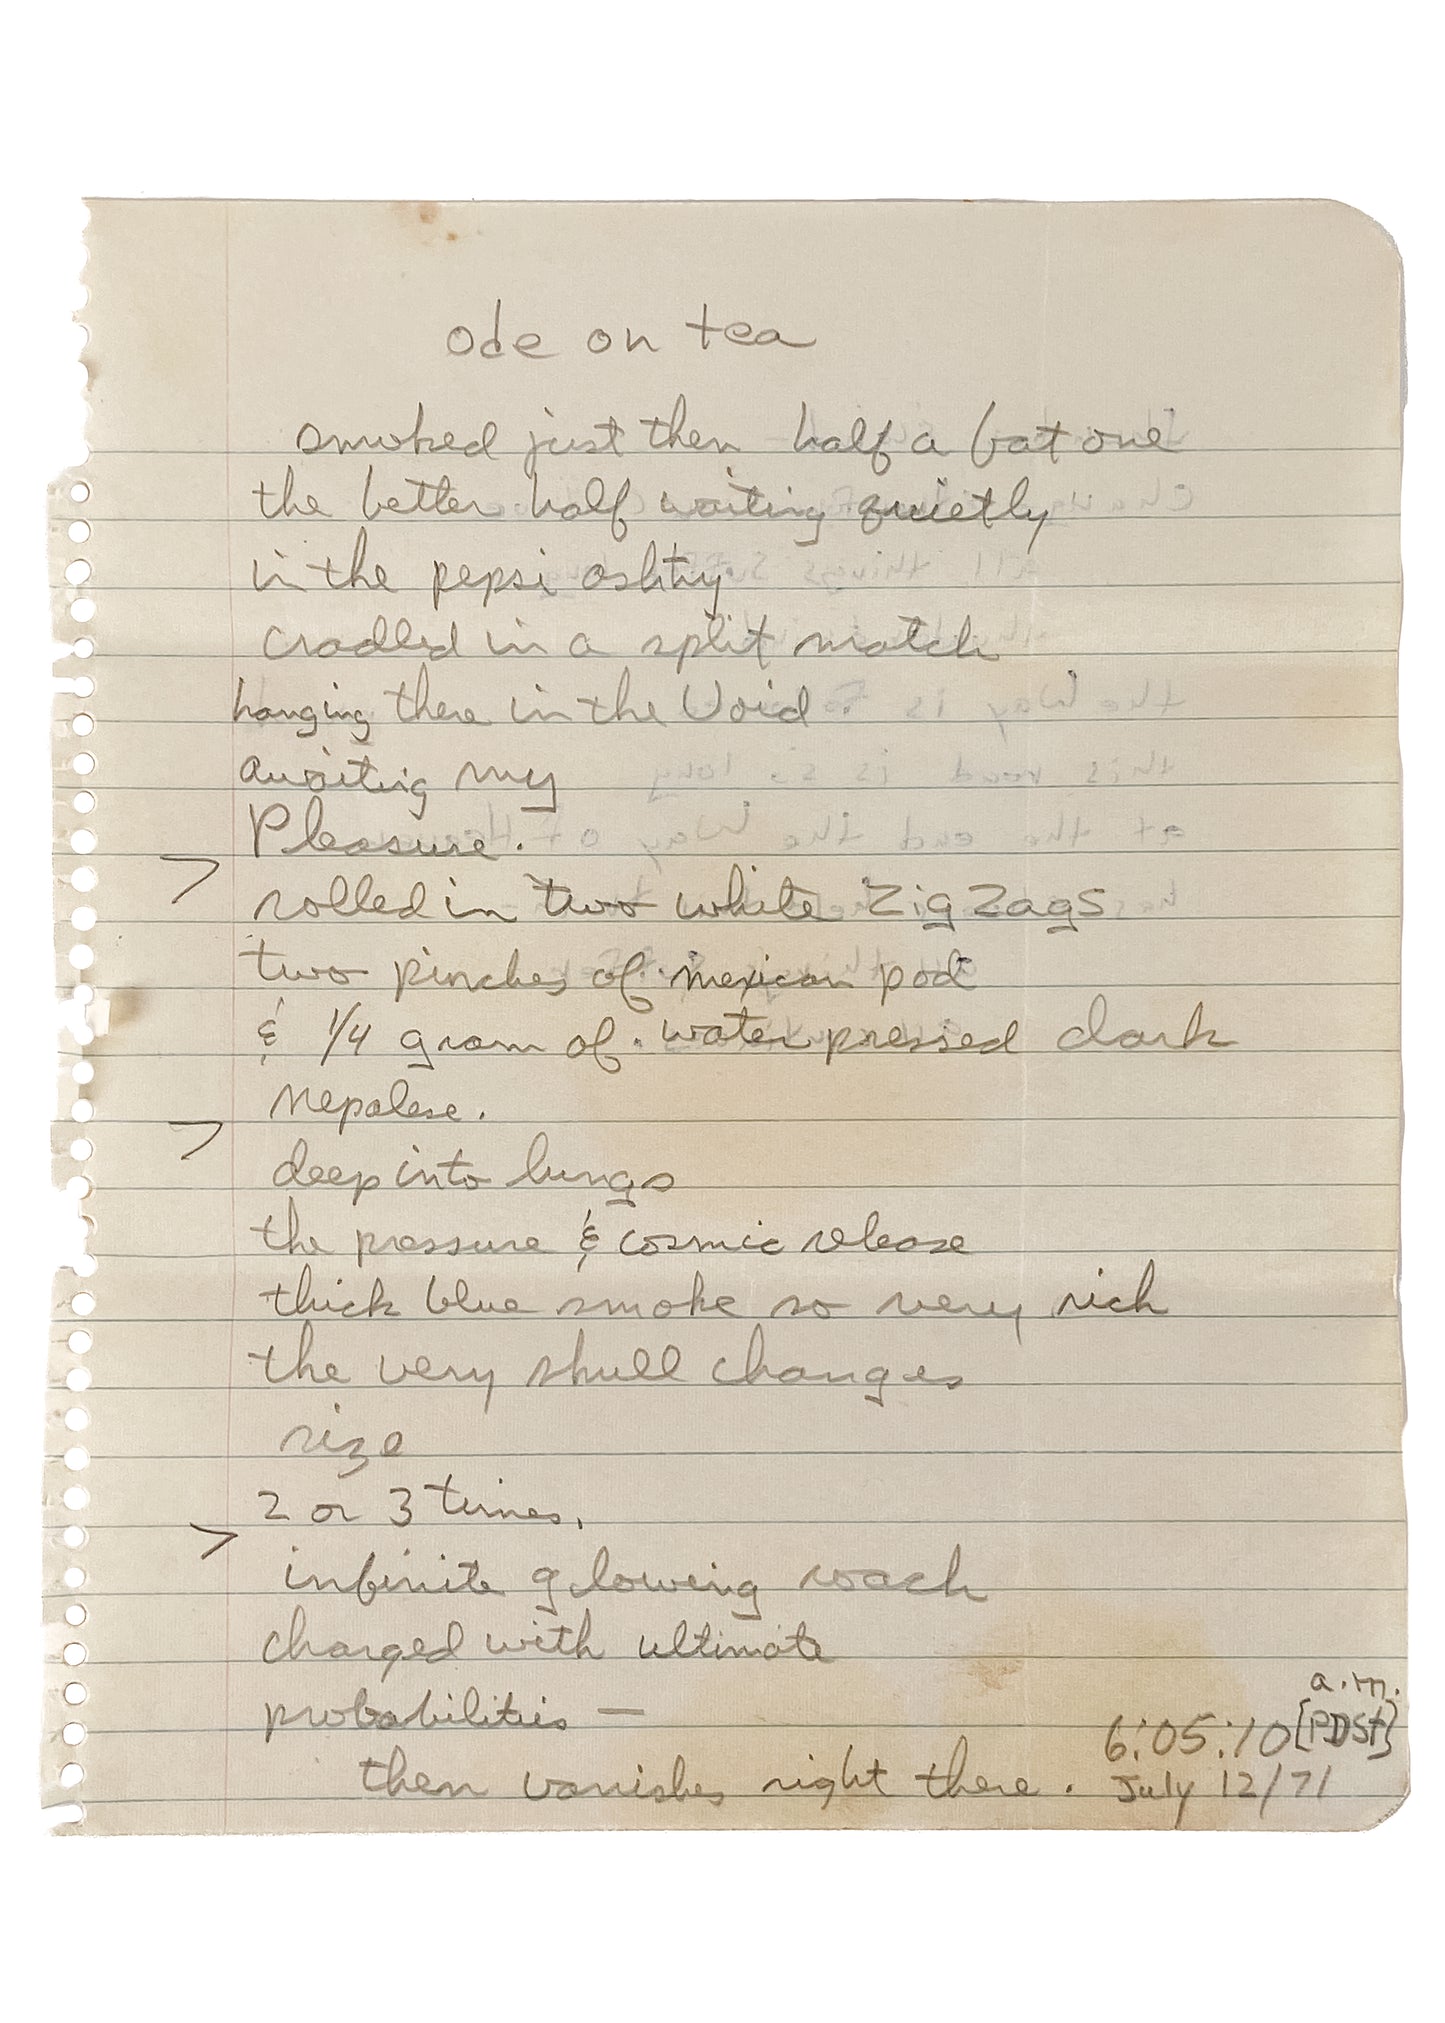 ode on tea
smoked just then half a fat one
the better half waiting quietly
in the pepsi ashtry
cradled in a split match
hanging there in the Void.
awaiting my
Pleasure.
> rolled in two white ZigZags
two pinches of mexican pod
& 1/4 gram of water pressed dark
Nepalese.
> deep into lungs
the pressure & cosmic release
thick blue smoke so very rich
the very skull changes
size
2 or 3 times.
> infinite glowing roach
charged with ultimate
probabilities —
then vanishes right there.
a.m.
6:05:10 [PDST]
July 12/71